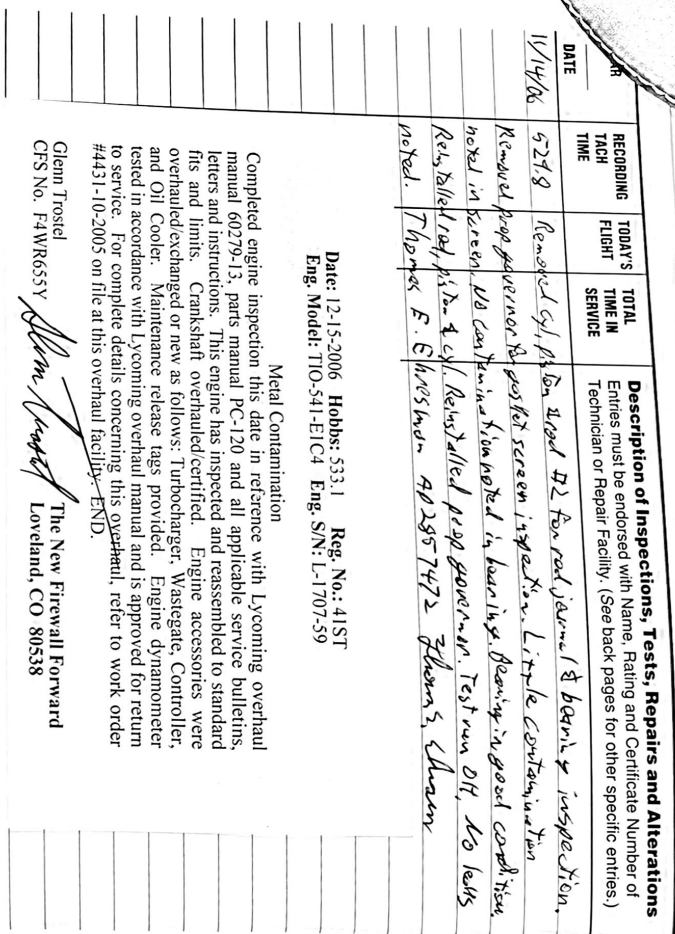 Description of Inspections, Tests, Repairs and Alterations
Entries must be endorsed with Name, Rating and Certificate Number of
Technician or Repair Facility. (See back pages for other specific entries.)
DATE
RECORDING
TACH
TIME
TODAY'S
FLIGHT
TOTAL
TIME IN
SERVICE
11/14/06 529.8 Removed cyl, piston & rod #2 for rod journal & bearing inspection.
Removed prop governor for gasket screen inspection. Little contamination
noted in screen. No contamination noted in bearing. Bearing in good condition.
Reinstalled rod, piston & cyl. Reinstalled prop governor. Test run OK, No leaks
noted. Thomas E. Ehresman AP2857472
Date: 12-15-2006 Hobbs: 533.1 Reg. No.: 41ST
Eng. Model: TIO-541-E1C4 Eng. S/N: L-1707-59
Metal Contamination
Completed engine inspection this date in reference with Lycoming overhaul
manual 60279-13, parts manual PC-120 and all applicable service bulletins,
letters and instructions. This engine has inspected and reassembled to standard
fits and limits. Crankshaft overhauled/certified. Engine accessories were
overhauled/exchanged or new as follows: Turbocharger, Wastegate, Controller,
and Oil Cooler. Maintenance release tags provided. Engine dynamometer
tested in accordance with Lycoming overhaul manual and is approved for return
to service. For complete details concerning this overhaul, refer to work order
#4431-10-2005 on file at this overhaul facility. END.
Glenn Trostel
CFS No. F4WR655Y
The New Firewall Forward
Loveland, CO 80538